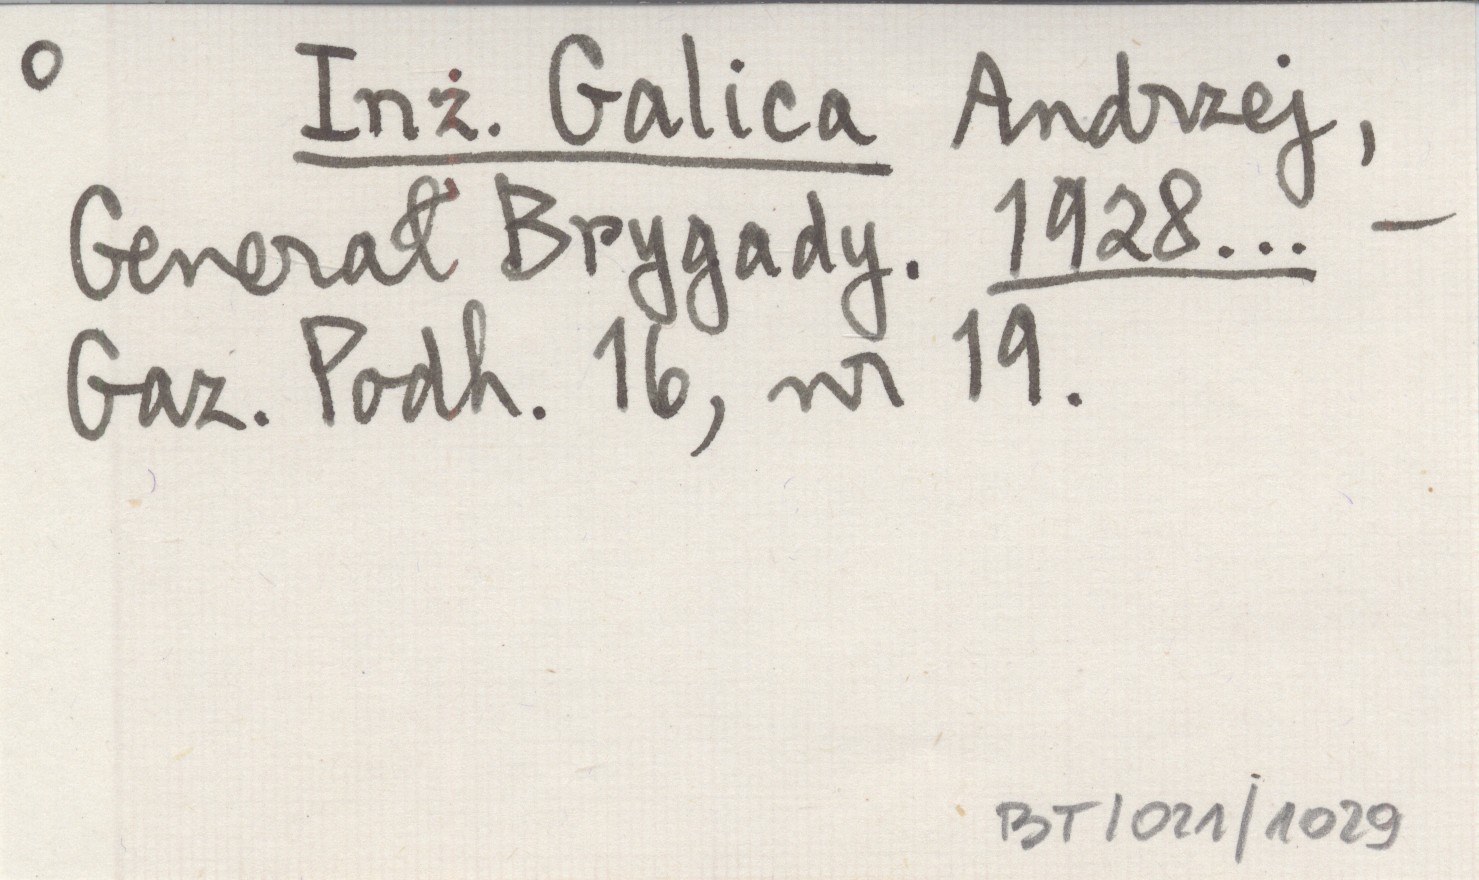 o Inż. Galica Andrzej,
Generał Brygady. 1928... —
Gaz. Podh. 16, nr 19.
BT/021/1029